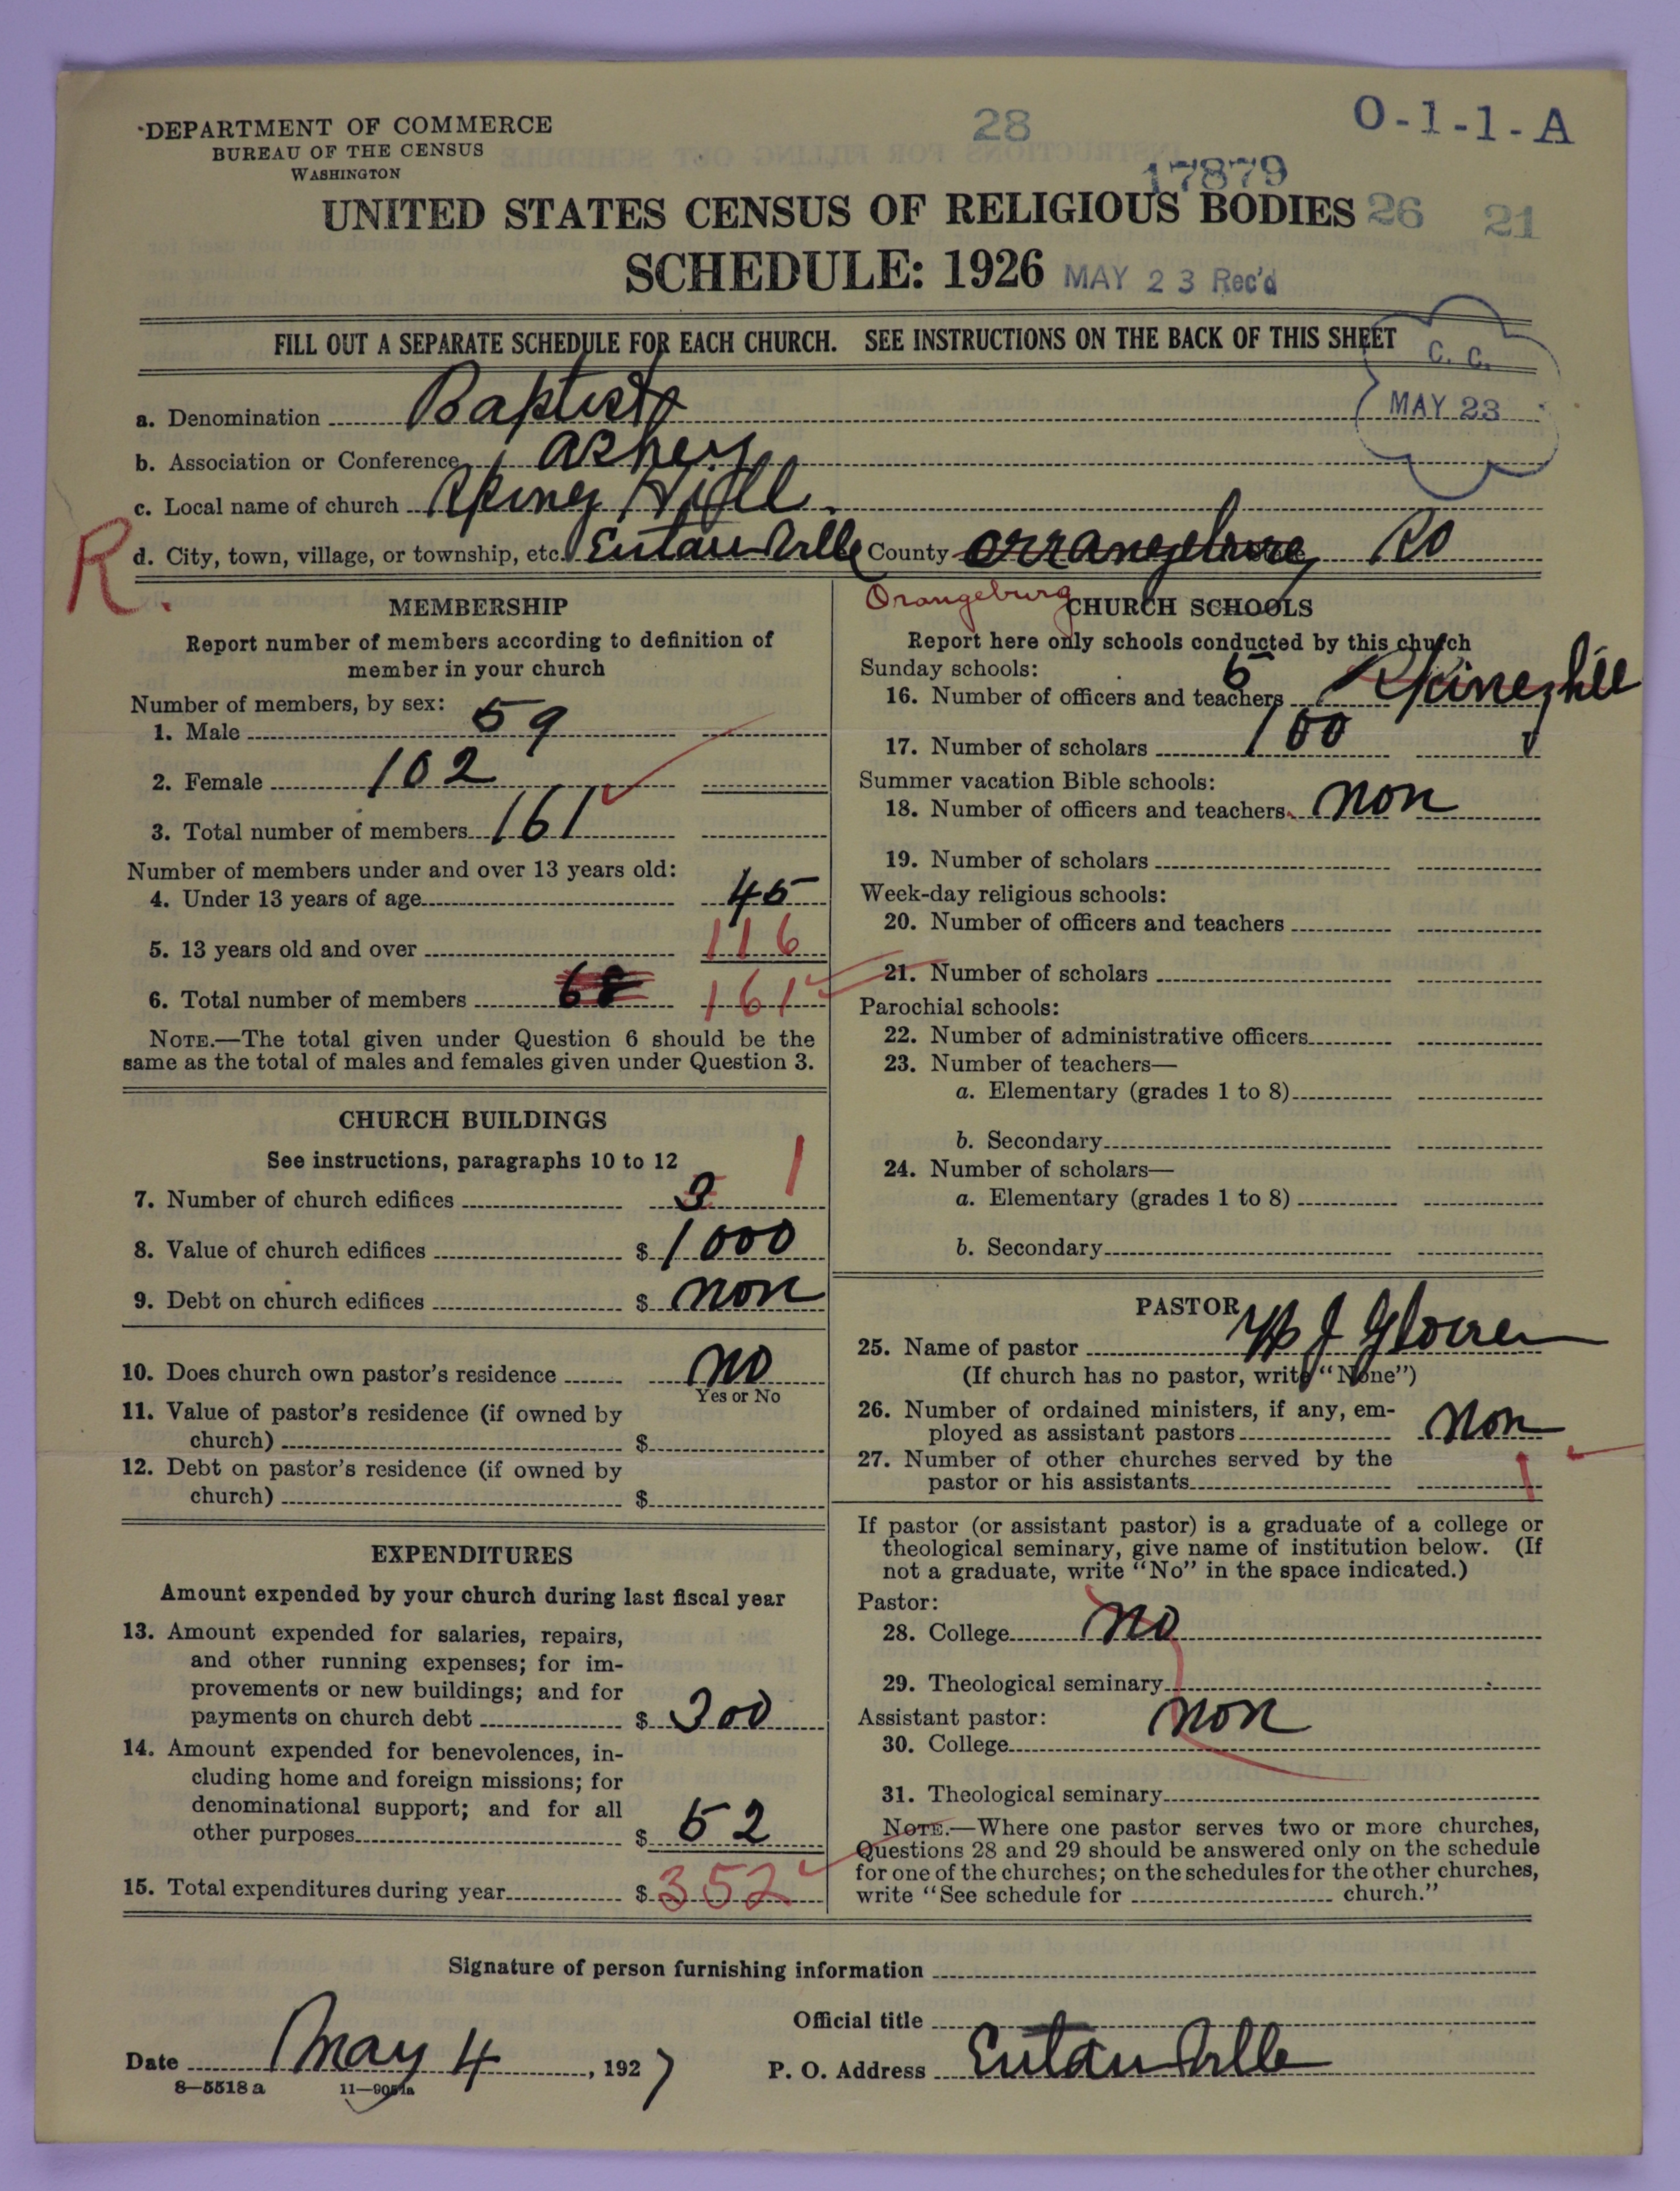 DEPARTMENT OF COMMERCE
BUREAU OF THE CENSUS
WASHINGTON
28
O-1-1-A
17879
UNITED STATES CENSUS OF RELIGIOUS BODIES 26 21
SCHEDULE: 1926 MAY 23 Rec'd
FILL OUT A SEPARATE SCHEDULE FOR EACH CHURCH. SEE INSTRUCTIONS ON THE BACK OF THIS SHEET
C. C.
MAY 23
a. Denomination Baptist
b. Association or Conference
c. Local name of church Hill
R.
d. City, town, village, or township, etc. Eutauville County
Orangeburg
MEMBERSHIP
Report number of members according to definition of
member in your church
Number of members, by sex:
1. Male 59
2. Female 102
3. Total number of members 161
Number of members under and over 13 years old:
4. Under 13 years of age 45
5. 13 years old and over 116
6. Total number of members 68 161
NOTE.—The total given under Question 6 should be the
same as the total of males and females given under Question 3.
CHURCH BUILDINGS
See instructions, paragraphs 10 to 12
1
7. Number of church edifices 3
8. Value of church edifices $ 1000
9. Debt on church edifices $ non
10. Does church own pastor's residence no
Yes or No
11. Value of pastor's residence (if owned by
church) $
12. Debt on pastor's residence (if owned by
church) $
EXPENDITURES
Amount expended by your church during last fiscal year
13. Amount expended for salaries, repairs,
and other running expenses; for im-
provements or new buildings; and for
payments on church debt $ 300
14. Amount expended for benevolences, in-
cluding home and foreign missions; for
denominational support; and for all
other purposes $ 52
15. Total expenditures during year $ 352
CHURCH SCHOOLS
Report here only schools conducted by this church
Sunday schools:
16. Number of officers and teachers 5
17. Number of scholars 100
Summer vacation Bible schools:
18. Number of officers and teachers non
19. Number of scholars
Week-day religious schools:
20. Number of officers and teachers
21. Number of scholars
Parochial schools:
22. Number of administrative officers
23. Number of teachers—
a. Elementary (grades 1 to 8)
b. Secondary
24. Number of scholars—
a. Elementary (grades 1 to 8)
b. Secondary
PASTOR
25. Name of pastor J Glover
(If church has no pastor, write "None")
26. Number of ordained ministers, if any, em-
ployed as assistant pastors non
27. Number of other churches served by the
pastor or his assistants 1
If pastor (or assistant pastor) is a graduate of a college or
theological seminary, give name of institution below. (If
not a graduate, write "No" in the space indicated.)
Pastor:
28. College no
29. Theological seminary
Assistant pastor: non
30. College
31. Theological seminary
NOTE.—Where one pastor serves two or more churches,
Questions 28 and 29 should be answered only on the schedule
for one of the churches; on the schedules for the other churches,
write "See schedule for church."
Signature of person furnishing information
Official title
Date May 4, 1927 P. O. Address Eutauville
8—5518 a 11—9051a